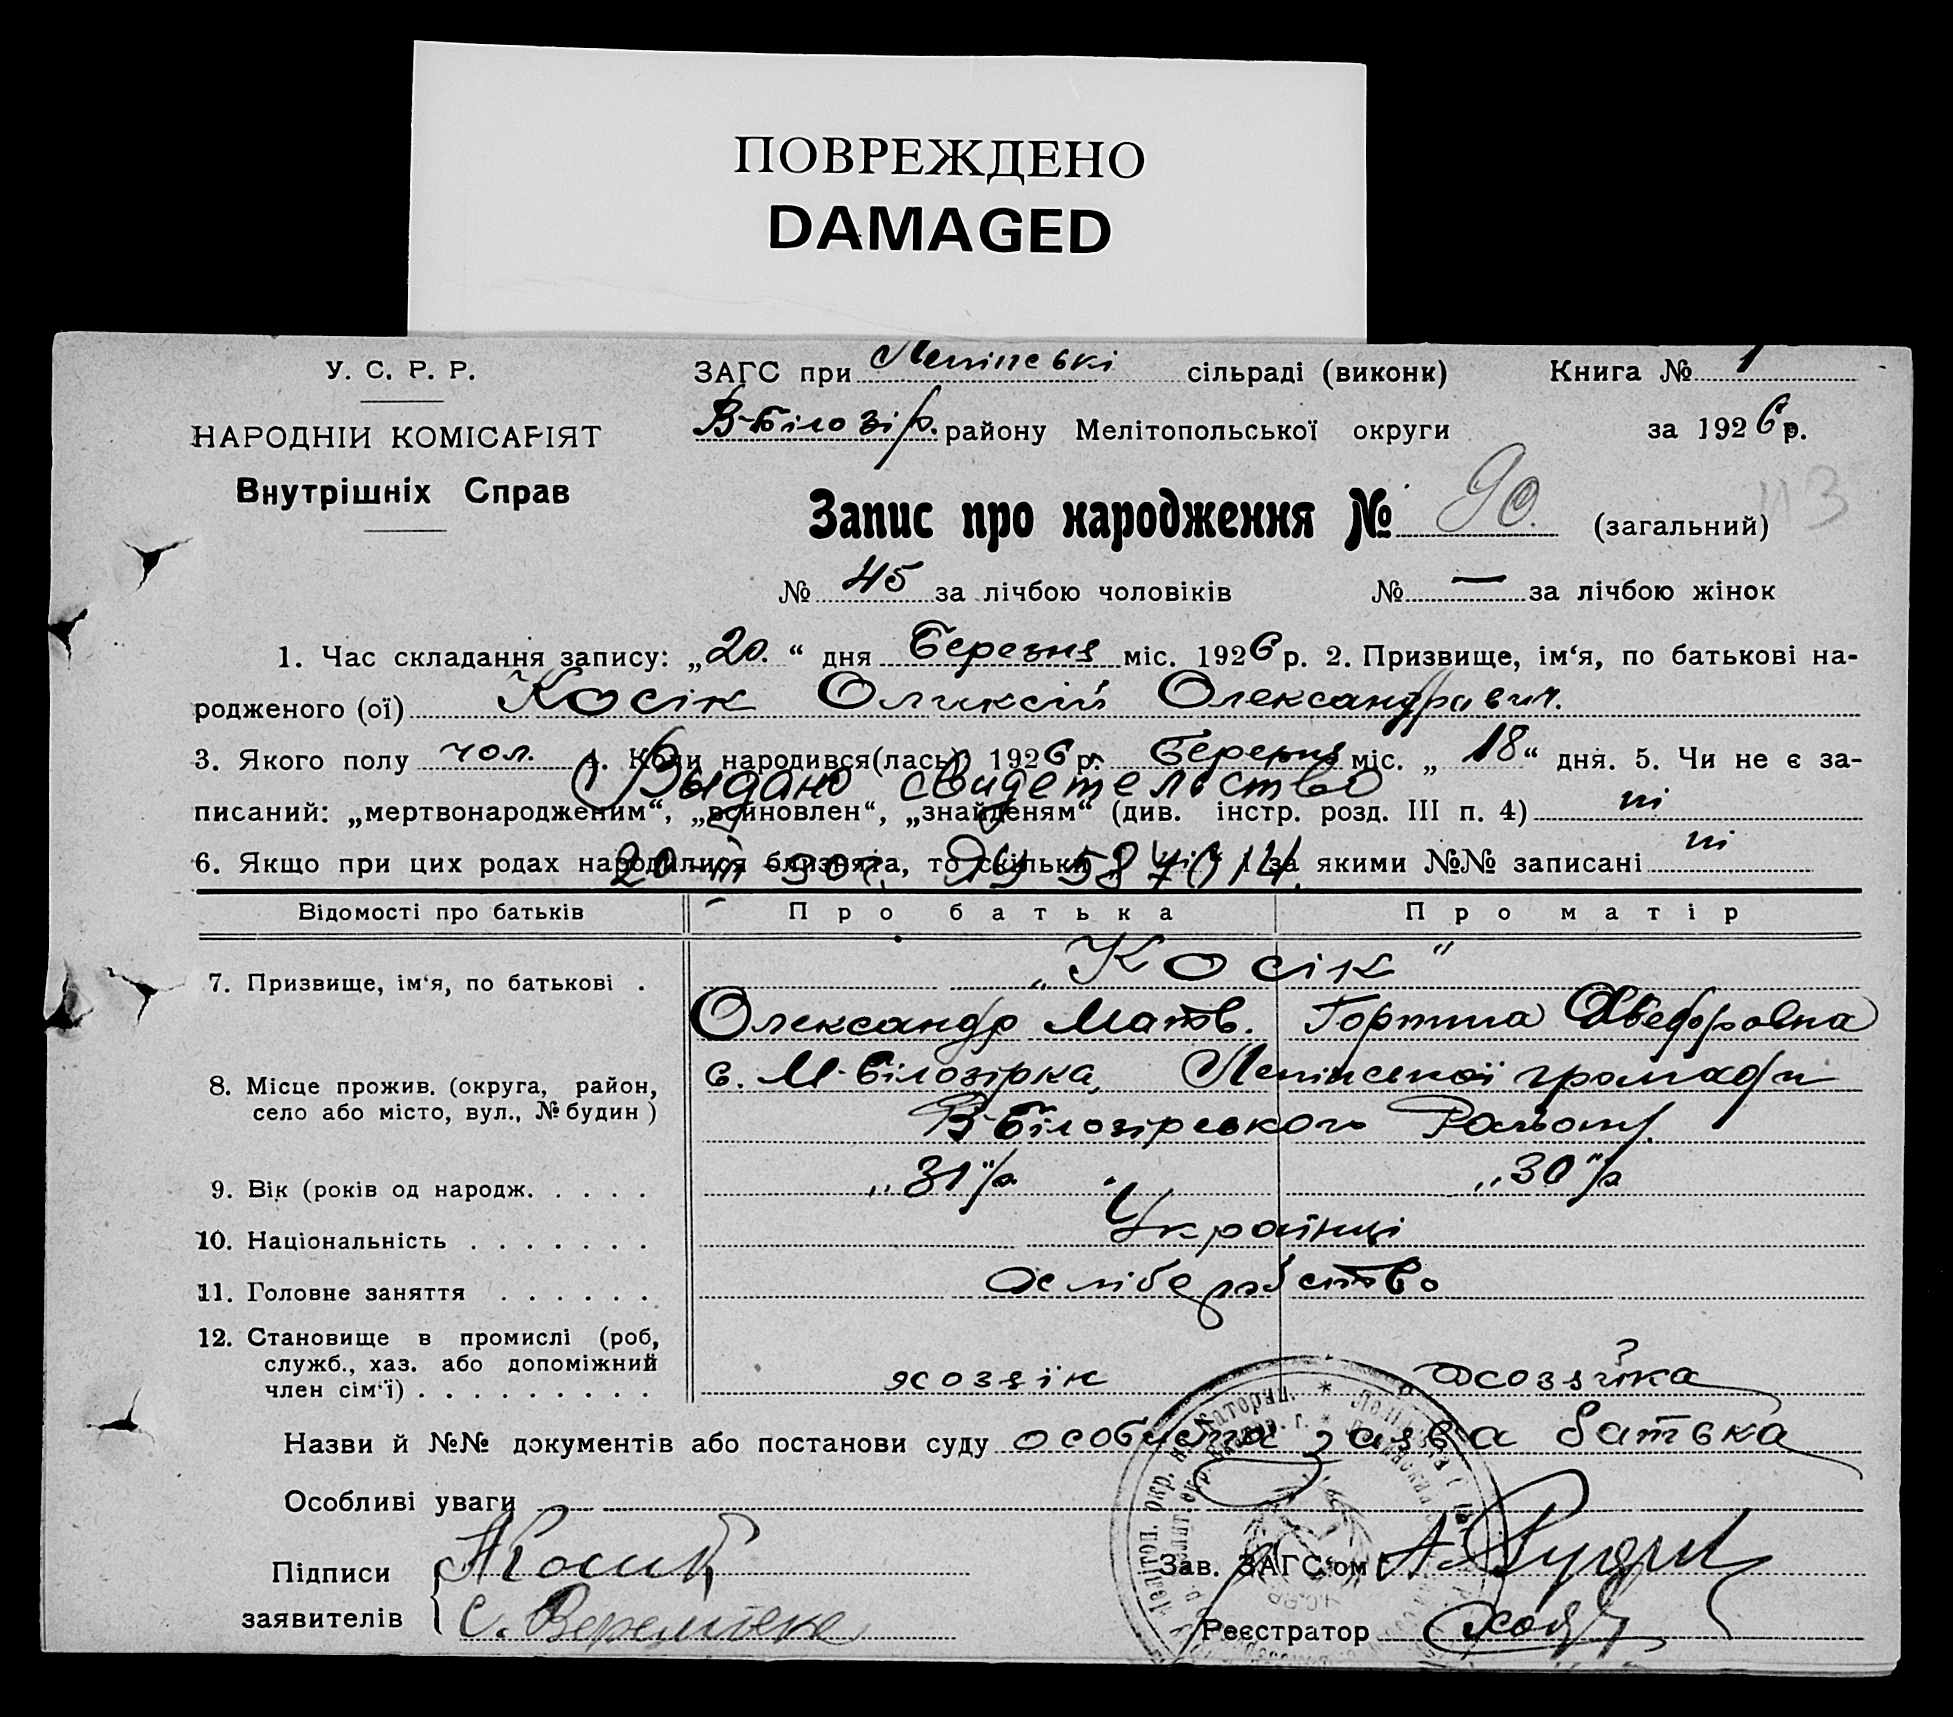 ПОВРЕЖДЕНО
DAMAGED
У. С. Р. Р.
НАРОДНІИ КОМІСАРІЯТ
Внутрішніх Справ
ЗАГС при Ленінські сільраді (виконк) Книга № 1
В-Білозір. району Мелітопольської округи за 1926 р.
Запис про народження № 90 (загальний) 113
№ 45 за лічбою чоловіків № — за лічбою жінок
1. Час складання запису: „20.“ дня Березня міс. 1926 р. 2. Призвище, ім‘я, по батькові на-
родженого (ої) Косік Оликсій Олександрович.
3. Якого полу чол. 4. Коли народився(лась) 1926 р. Березня міс. „18“ дня. 5. Чи не є за-
Выдано свидетельство
писаний: „мертвонародженим“, „всиновлен“, „знайденям“ (див. інстр. розд. III п. 4) ні
6. Якщо при цих родах народилися близнята, то скільки за якими №№ записані ні
Відомості про батьків Про батька Про матір
7. Призвище, ім‘я, по батькові . „Косік“
Олександр Матв. Горпина Хведоровна
8. Місце прожив. (округа, район, с. М-Білозірка, Ленінської громади
село або місто, вул., № будин ) В-Білозірського Району.
9. Вік (років од народж. . . . . „31“р. „30“р
10. Національність . . . . . . . Українці
11. Головне заняття . . . . . . Хліборобство
12. Становище в промислі (роб,
служб., хаз. або допоміжний
член сім‘ї) . . . . . . . . . хозяїн хозяйка
Назви й №№ документів або постанови суду особиста заява батька
Особливі уваги
Підписи А Косик Зав. ЗАГС‘ом
заявителів С. Веремієнко Реєстратор